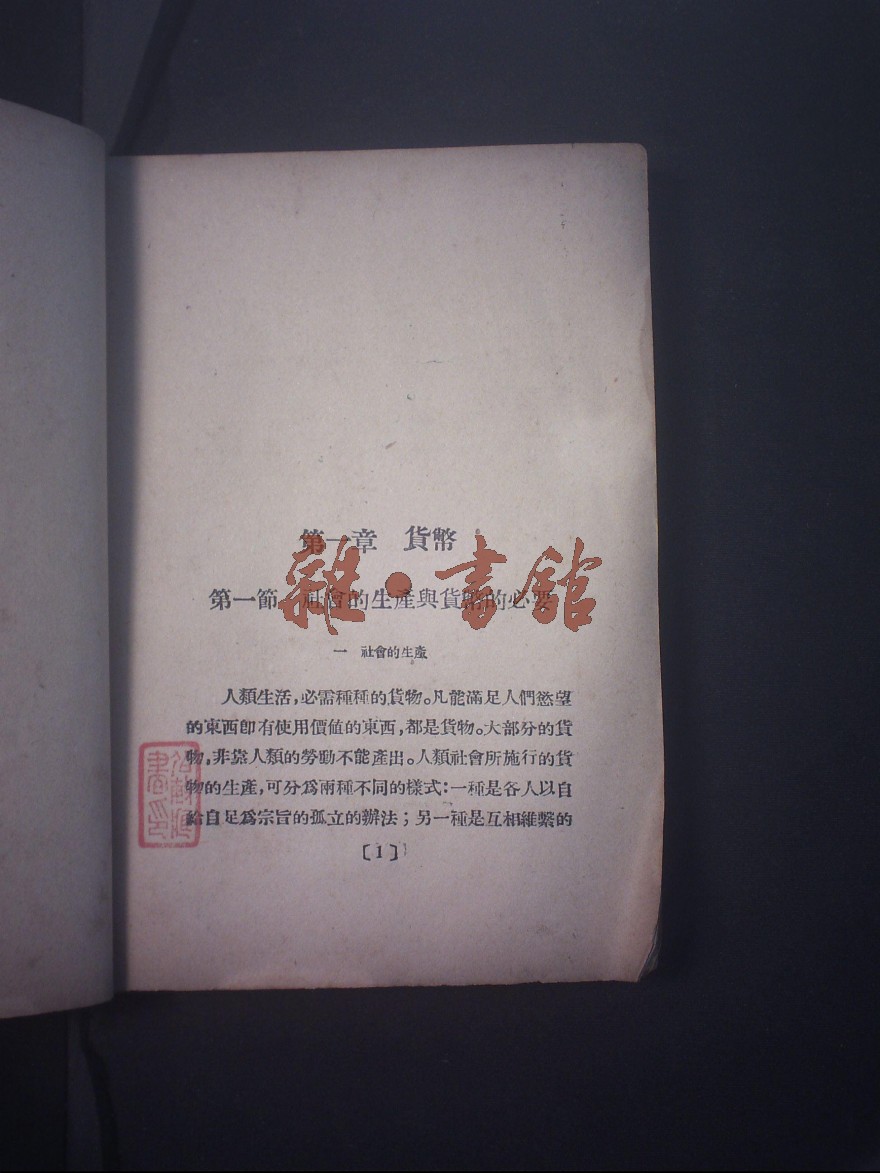 第一章　貨幣
第一節　社會的生產與貨幣的必要
雜·書館
一　社會的生產
人類生活，必需種種的貨物。凡能滿足人們慾望
的東西卽有使用價值的東西，都是貨物。大部分的貨
物，非靠人類的勞動不能產出。人類社會所施行的貨
物的生產，可分爲兩種不同的樣式：一種是各人以自
給自足爲宗旨的孤立的辦法；另一種是互相維繫的
〔1〕